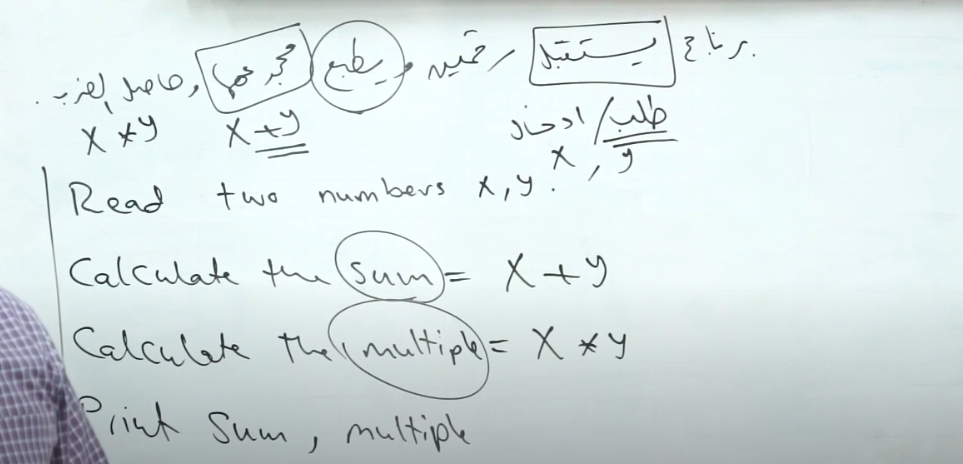 برنامج يستقبل رقمين ويطبع مجموعهما وحاصل الضرب.
طلب/ادخال
x, y
x + y
x * y
Read two numbers x, y.
Calculate the sum = x + y
Calculate the multiple = x * y
Print sum, multiple